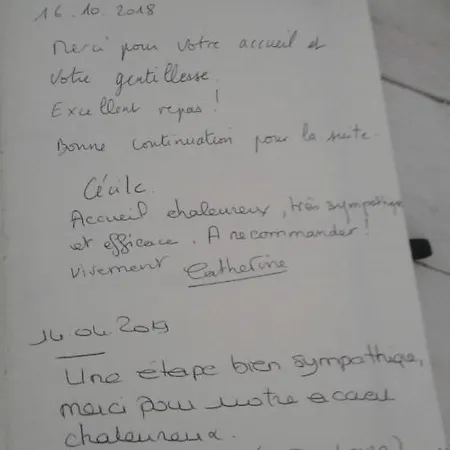 16.10.2018
Merci pour votre accueil et
votre gentillesse.
Excellent repas !
Bonne continuation pour la suite.
Cécile.
Accueil chaleureux, très sympathique
et efficace. A recommander !
vivement Catherine
14.04.2019
Une étape bien sympathique,
merci pour votre accueil
chaleureux.